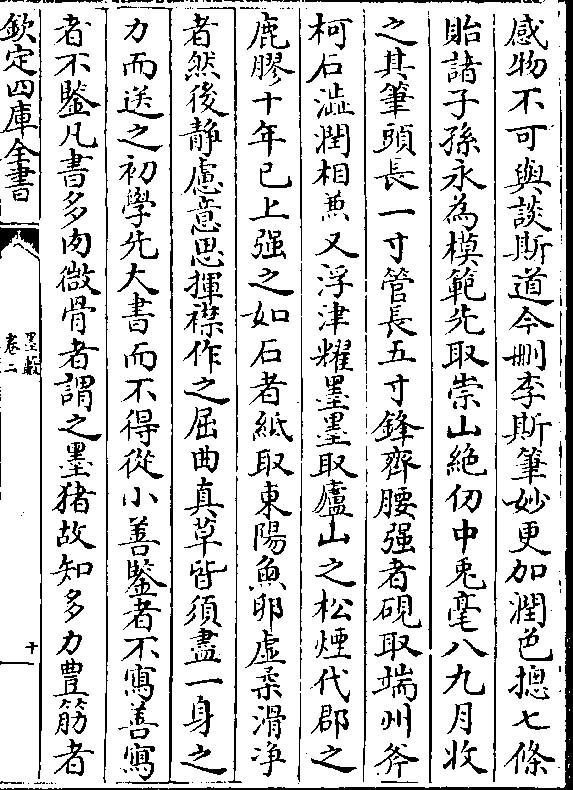 感物不可與談斯道今刪李斯筆妙更加潤色摠七條
貽諸子孫永為模範先取崇山絶仞中兎毫八九月收
之其筆頭長一寸管長五寸鋒齊腰强者硯取端州斧
柯石澁潤相兼又浮津耀墨墨取廬山之松煙代郡之
鹿膠十年已上强之如石者紙取東陽魚卵虛柔滑浄
者然後静慮意思揮襟作之屈曲真草皆須盡一身之
力而送之初學先大書而不得從小善鑒者不寫善寫
者不鑒凡書多肉微骨者謂之墨猪故知多力豊筋者
欽定四庫全書
墨藪
卷二
十